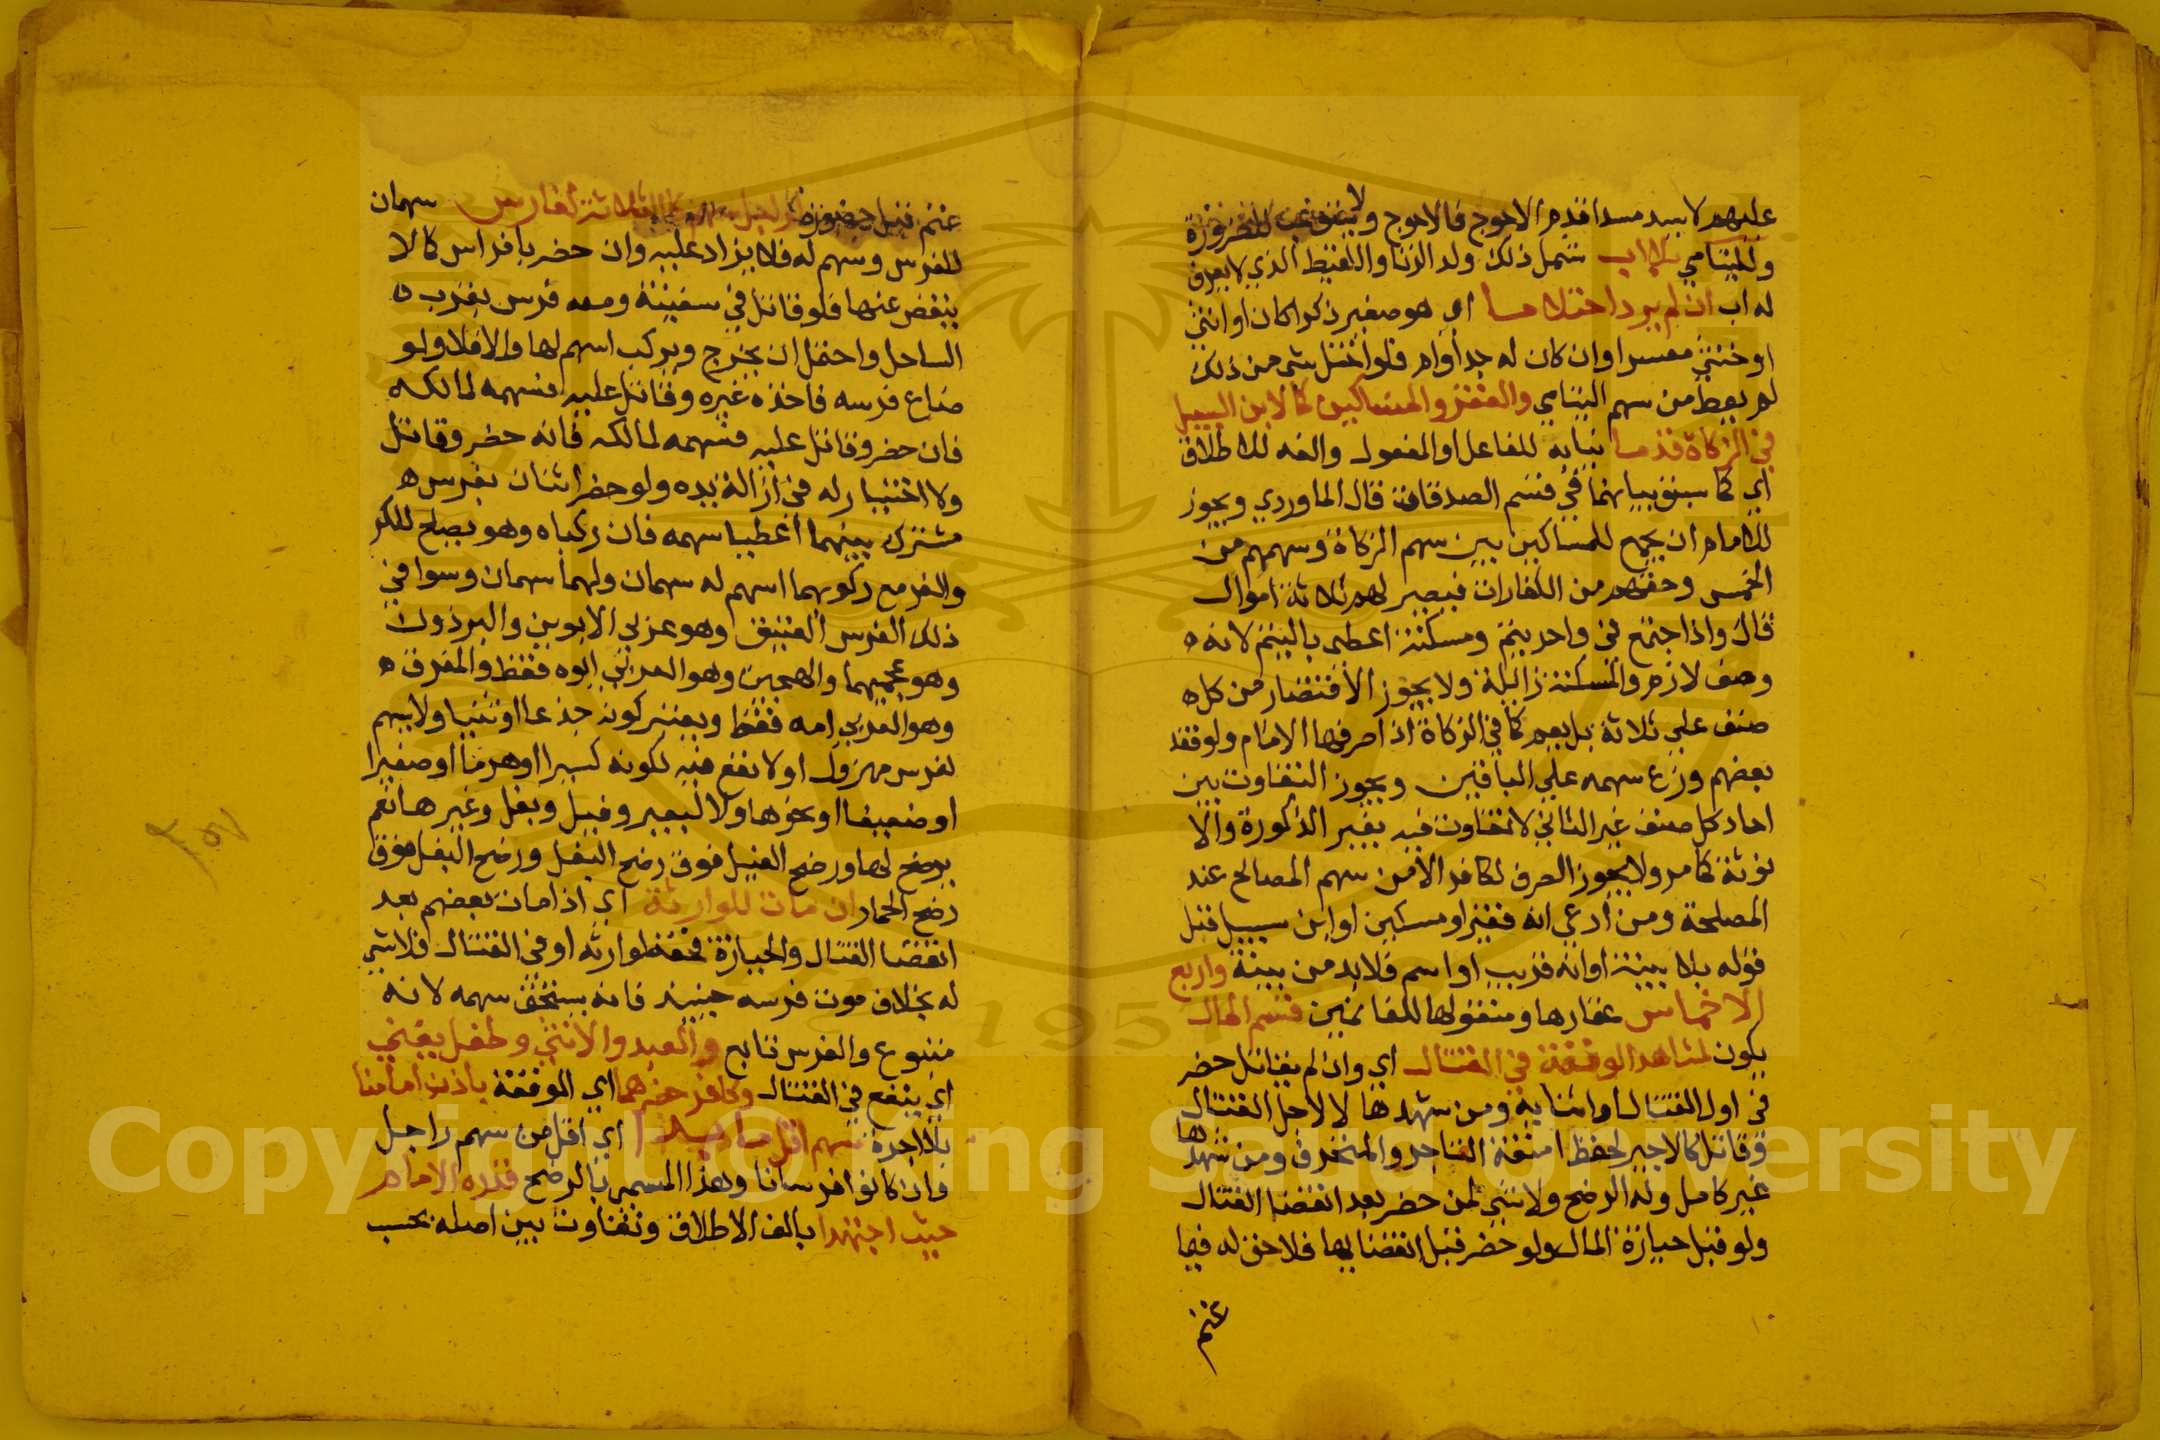 عليهم لا يسد مسدا قدم الاحوج فالاحوج ولا يستوعب للضرورة
ولليتامي بلا اب شمل ذلك ولد الزنا واللقيط الذي لا يعرف
له اب ان لم ير داحتلاما اي هو صغير ذكرا كان او انثي
او خنثي معسرا وان كان له جد او ام فلو اختل شي من ذلك
لم يعط من سهم اليتامي والفقر والمساكين كالابن السبيل
في الزكاة قدما بنايه للفاعل او المفعول والفه للاطلاق
اي كما سبق بيانهما في قسم الصدقات قال الماوردي ويجوز
للامام ان يجمع للمساكين بين سهم الزكاة وسهمهم من
الخمس وحقهم من الكفارات فيصير لهم ثلاثة اموال
قال واذا اجتمع في واحد يتم ومسكنة اعطي باليتم لانه
وصف لازم والمسكنة زايلة ولا يجوز الاقتصار من كل
صنف علي ثلاثة بل يعم كما في الزكاة اذا صرفها الامام ولو فقد
بعضهم وزع سهمه علي الباقين ويجوز التفاوت بين
احاد كل صنف غير الثاني لا تفاوت فيه بغير الذكورة والا
نوثة كما مر ولا يجوز الصرف لكافر الا من سهم المصالح عند
المصلحة ومن ادعي انه فقير او مسكين او ابن سبيل قبل
قوله بلا بينة او انه قريب او اسم فلا بد من بينة واربع
الاخماس عقارها ومنقولها للغانمين قسم المال
يكون لشاهد الوقعة في القتال اي وان لم يقاتل حضر
في اول القتال او اثنايه ومن شهدها لا لاجل القتال
وقاتل كالاجير لحفظ امتعة التاجر والمحترف ومن شهدها
غير كامل وله الرضخ ولا شي لمن حضر بعد انقضا القتال
ولو قبل حيازة المال ولو حضر قبل انقضايها فلا حق له فيما
غنم
غنم قبل حضوره للراجل سهم كما الثلاثة لفارس سهمان
للفرس وسهم له فلا يزاد عليه وان حضر بافراس كما لا
ينقص عنها فلو قاتل في سفينة ومعه فرس بقرب
الساحل واحتمل ان يخرج ويركب اسهم لها والا فلا ولو
ضاع فرسه فاخذه غيره وقاتل عليه فسهمه لمالكه
فان حضر وقاتل عليه فسهمه لمالكه فانه حضر وقاتل
ولا اختيار له في ازالة يده ولو حضر اثنان بفرس
مشترك بينهما اعطيا سهمه فان ركباه وهو يصلح للكر
والفر مع ركوبهما اسهم له سهمان ولهما سهمان وسوا في
ذلك الفرس العتيق وهو عربي الابوين والبرذون
وهو عجميهما والهجين وهو العربي ابوه فقط والمقرف
وهو العربي امه فقط ويعتبر كونه جذعا او ثنيا ولا يسهم
لفرس مهزول او لا نفع فيه لكونه كسيرا او هرما او صغيرا
او ضعيفا او نحوها ولا لبعير وفيل وبغل وغيرها نعم
يرضخ لها ورضخ الفيل فوق رضخ البغل ورضخ البغل فوق
رضخ الحمار ان مات للوارثة اي اذا مات بعضهم بعد
انقضا القتال والحيازة فحقه لوارثه او في القتال فلا شي
له بخلاف موت فرسه حينيذ فانه يستحق سهمه لانه
متبوع والفرس تابع والعبد والانثي وطفل يغني
اي ينفع في القتال وكافر حضرهما اي الوقعة باذن امامنا
بلا اجرة سهم اقل ما بدا اي اقل من سهم راجل
وان كانوا فرسانا وهذا المسمي بالرضخ قدره الامام
حيث اجتهدا بالف الاطلاق وتفاوت بين اصله بحسب
Copyright © King Saud University
1957